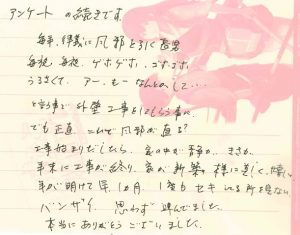 アンケートの続きです。
毎年、律義に風邪を引く長男
毎晩、毎晩、ゲホゲホ、ゴホゴホ
うるさくて、アー、もーなんとかして…
で外壁工事をしてもらう事に
でも正直 これで風邪が直る?
工事始まりだしたら、家の中が静か、まさか
年末に工事が終り、家が新築の様に美しく、
年が明けて早1ヵ月 1度もセキしている所を見ない
バンザイ 思わず叫んでました。
本当にありがとうございました。